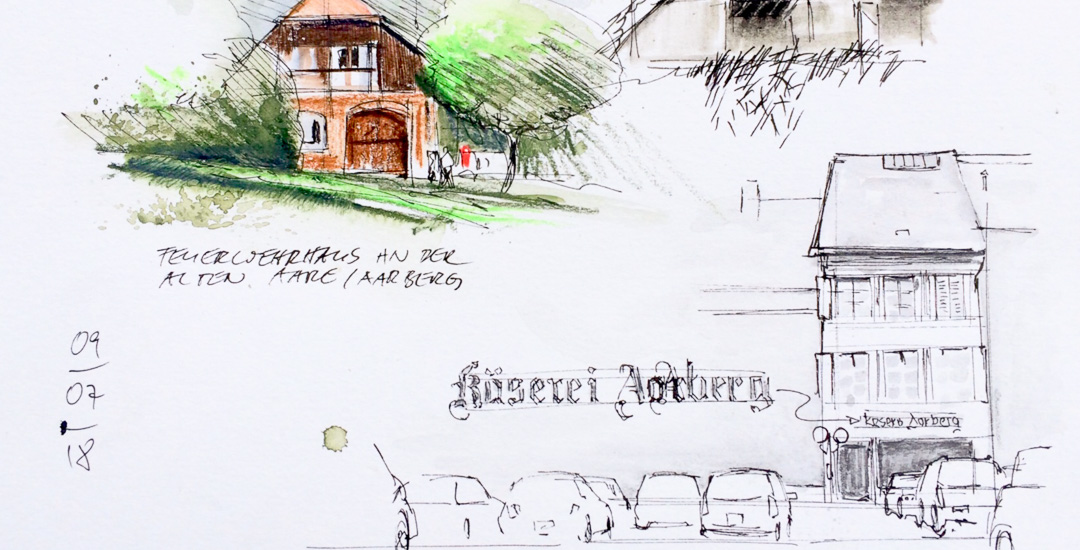 FEUERWEHRHAUS AN DER
ALTEN AARE / AARBERG
09
07
18
Käserei Aarberg
D'Käserei Aarberg